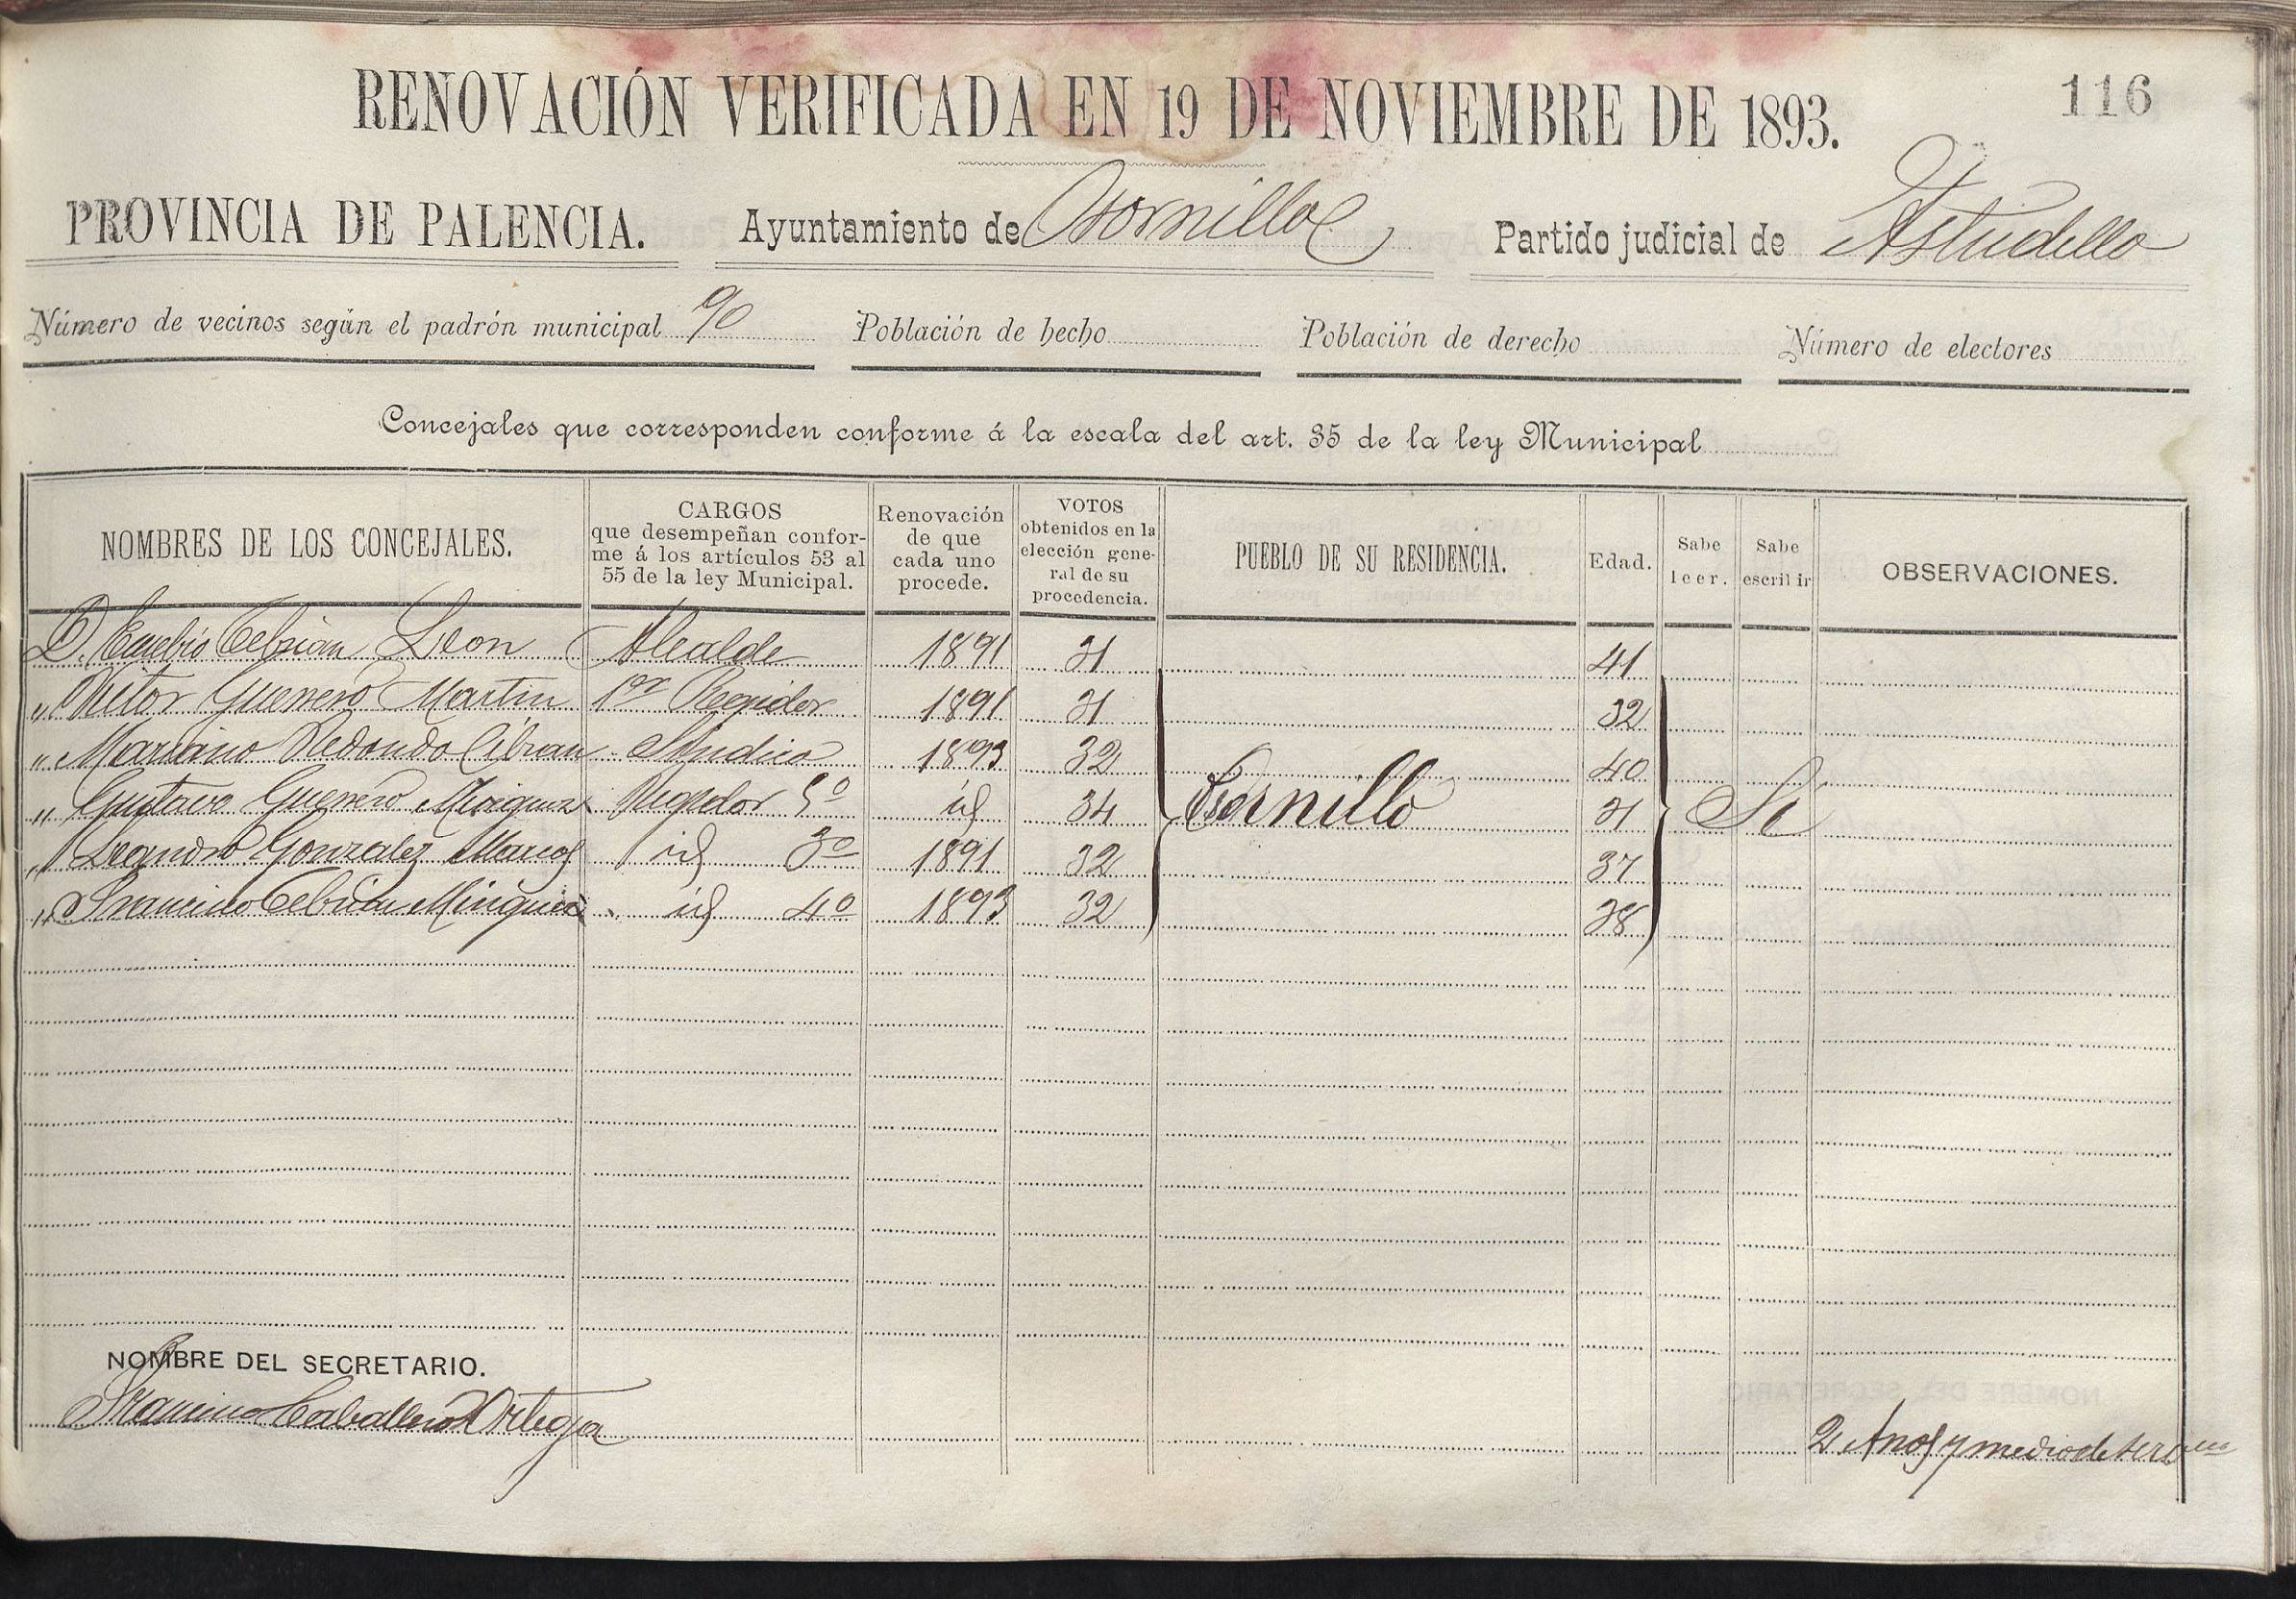 RENOVACIÓN VERIFICADA EN 19 DE NOVIEMBRE DE 1893. 116
PROVINCIA DE PALENCIA. Ayuntamiento de Osornillo Partido judicial de Astudillo
Número de vecinos según el padrón municipal 90 Población de hecho Población de derecho Número de electores
Concejales que corresponden conforme á la escala del art. 35 de la ley Municipal
NOMBRES DE LOS CONCEJALES. CARGOS que desempeñan conforme á los artículos 53 al 55 de la ley Municipal. Renovación de que cada uno procede. VOTOS obtenidos en la elección general de su procedencia. PUEBLO DE SU RESIDENCIA. Edad. Sabe leer. Sabe escribir OBSERVACIONES.
D. Eusebio Cebrian Leon Alcalde 1891 31 41
" Victor Guerrero Martin 1er Regidor 1891 31 32
" Mariano Redondo Cibrian Sindico 1893 32 40
" Gustavo Guerrero Regidor id 34 Osornillo 31 Si
" Leandro Gonzalez Marcos id 3º 1891 32 37
" Francisco Cebrian Minguez id 4º 1893 32 38
NOMBRE DEL SECRETARIO.
Francisco Caballero Ortega 2 Años y medio de